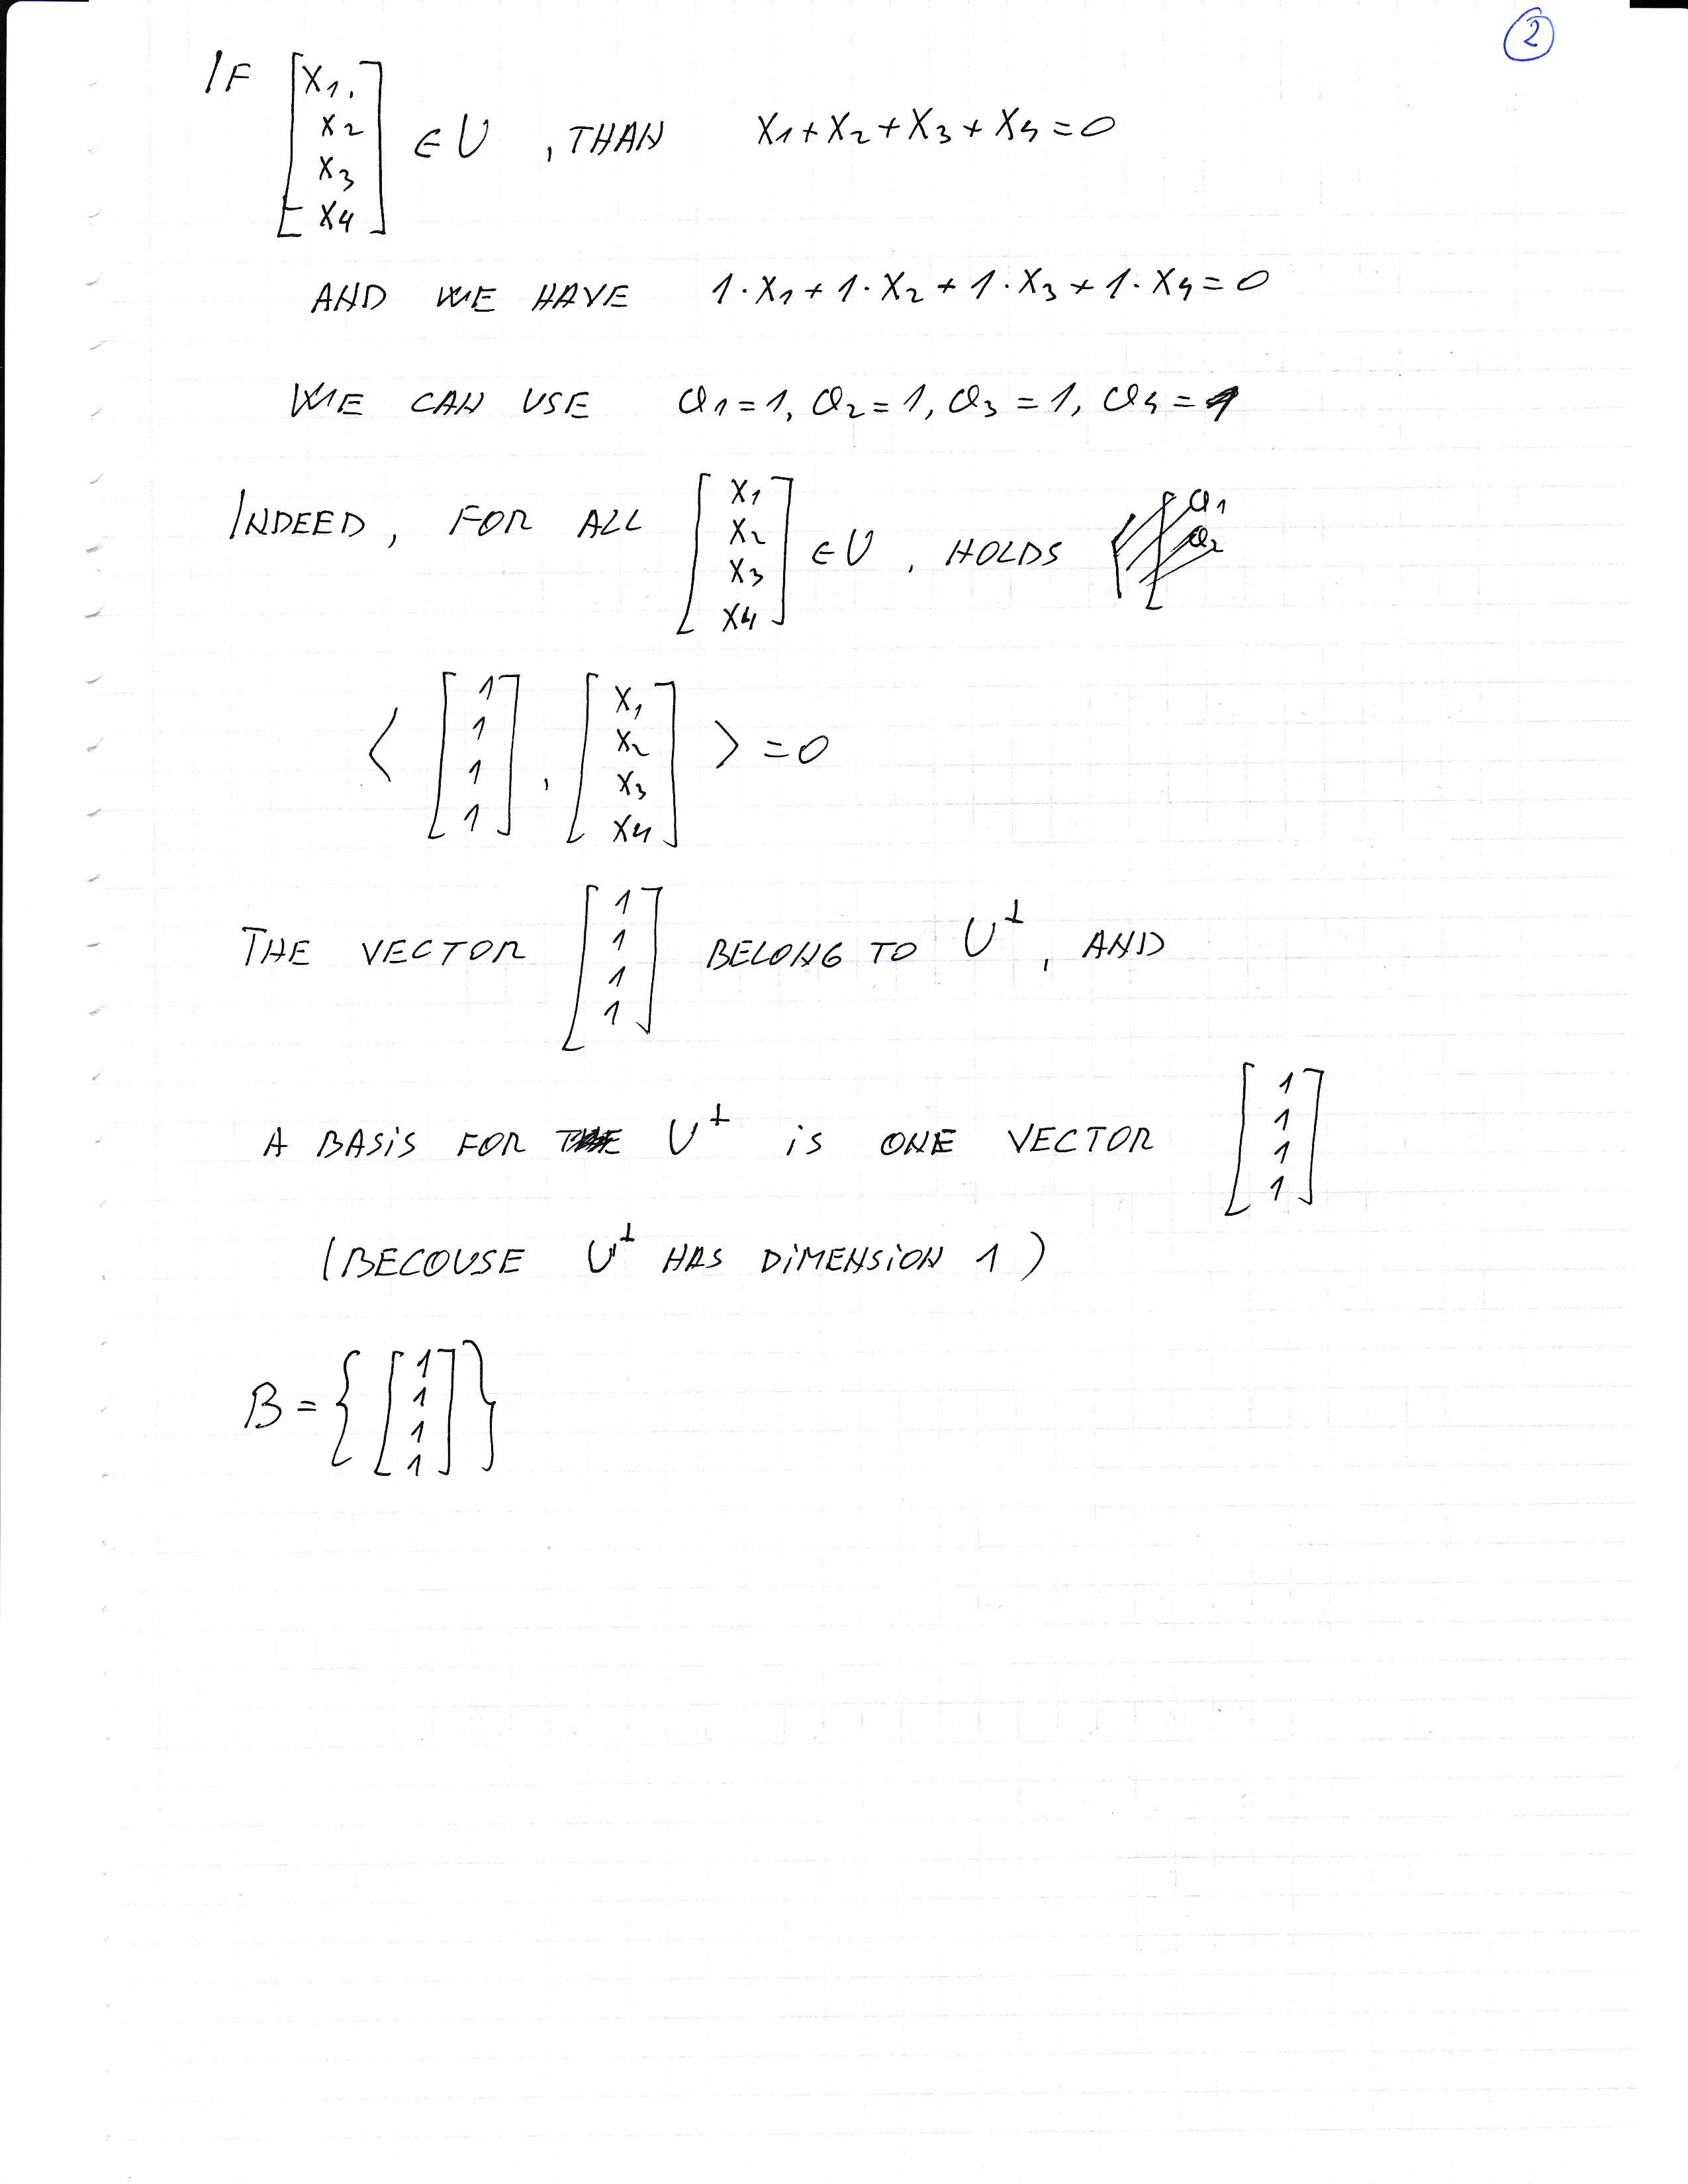 2
IF [x1, x2 x3 x4] ∈ U, THAN x1 + x2 + x3 + x4 = 0
AND WE HAVE 1·x1 + 1·x2 + 1·x3 + 1·x4 = 0
WE CAN USE a1 = 1, a2 = 1, a3 = 1, a4 = 1
INDEED, FOR ALL [x1 x2 x3 x4] ∈ U, HOLDS [a1 a2
< [1 1 1 1], [x1 x2 x3 x4] > = 0
THE VECTOR [1 1 1 1] BELONG TO U⊥, AND
A BASIS FOR THE U⊥ is ONE VECTOR [1 1 1 1]
(BECOUSE U⊥ HAS DIMENSION 1)
B = { [1 1 1 1] }